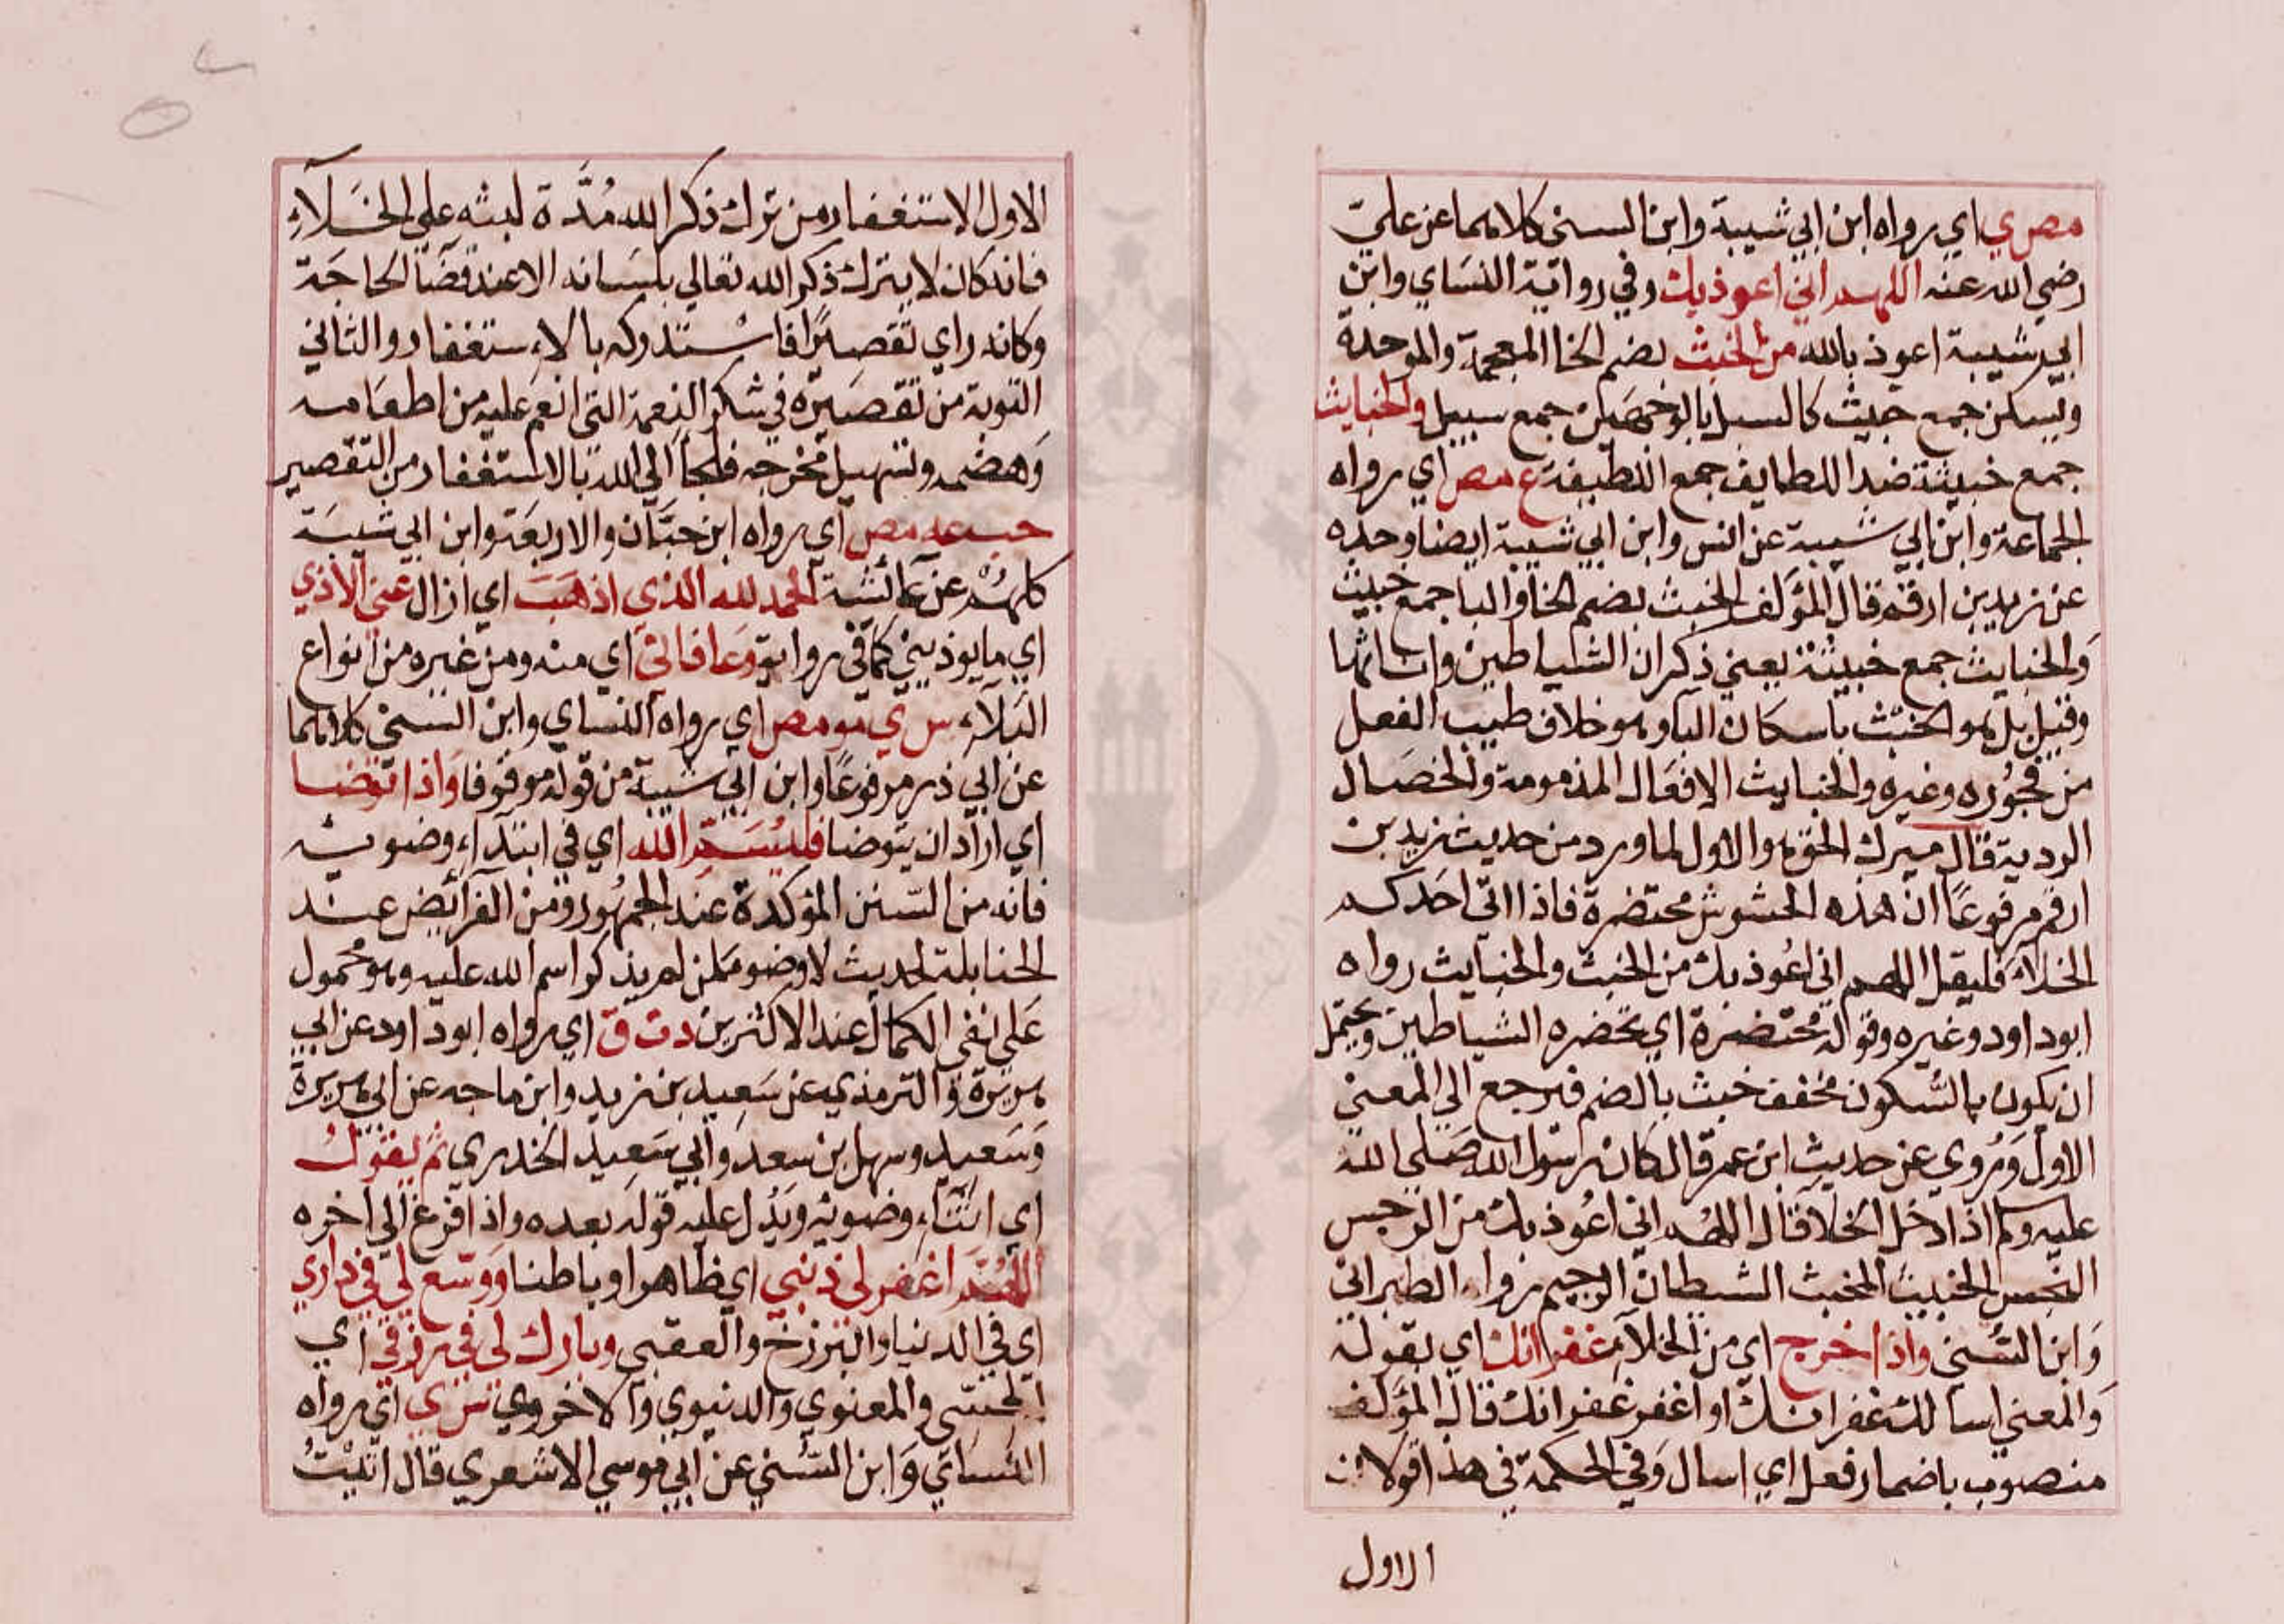 مص ي اي رواه ابن ابي شيبة وابن السني كلاهما عن علي
رضي الله عنه اللهم اني اعوذ بك وفي رواية النساي وابن
ابي شيبة اعوذ بالله من الخبث بضم الخا المعجمة والموحدة
ويسكن جمع خبيث كالسبل بالوجهين جمع سبيل والخبايث
جمع خبيثة ضد اللطايف جمع اللطيفة ع مص اي رواه
الجماعة وابن ابي شيبة عن انس وابن ابي شيبة ايضا وحده
عن زيد بن ارقم قال المؤلف الخبث بضم الخا والبا جمع خبيث
والخبايث جمع خبيثة يعني ذكران الشياطين واناثها
وقيل بل هو الخبث باسكان البا وهو خلاف طيب الفعل
من فجوره وغيره والخبايث الافعال المذمومة والخصال
الردية قال ميرك الحق هو الاول لما ورد من حديث زيد بن
ارقم مرفوعا ان هذه الحشوش محتضرة فاذا اتي احدكم
الخلاء فليقل اللهم اني اعوذ بك من الخبث والخبايث رواه
ابو داود وغيره وقوله محتضرة اي تحضره الشياطين ويحتمل
ان يكون بالسكون مخفف خبث بالضم فيرجع الي المعني
الاول وروي عن حديث ابن عمر قال كان رسول الله صلي الله
عليه وسلم اذا دخل الخلا قال اللهم اني اعوذ بك من الرجس
النجس الخبيث المخبث الشيطان الرجيم رواه الطبراني
وابن السني واذا خرج اي من الخلاء غفرانك اي يقوله
والمعني اسالك غفرانك او اغفر غفرانك قال المؤلف
منصوب باضمار فعل اي اسال وفي الحكمة في هذا قولان
الاول
الاول الاستغفار من ترك ذكر الله مُدَّة لبثه علي الخلآء
فانه كان لا يترك ذكر الله تعالي بلسانه الا عند قضآ الحاجة
وكانه راي تقصيرًا فاستدركه بالاستغفار والثاني
التوبة من تقصيره في شكر النعمة التي انعم عليه من اطعامه
وهضمه وتسهيل مخرجه فلجا الي الله بالاستغفار من التقصير
حب عه مص اي رواه ابن حبان والاربعة وابن ابي شيبة
كلهم عن عائشة الحمد لله الذي اذهب اي ازال عني الاذي
اي ما يوذيني كما في رواية وعافاني اي منه ومن غيره من انواع
البلآء س ي مو مص اي رواه النساي وابن السني كلاهما
عن ابي ذر مرفوعًا وابن ابي شيبة من قوله موقوفا واذا توضا
اي اراد ان يتوضا فليسم الله اي في ابتدآء وضويه
فانه من السنن المؤكدة عند الجمهور ومن الفرائض عند
الحنابلة لحديث لا وضوء لمن لم يذكر اسم الله عليه وهو محمول
علي نفي الكمال عند الاكثرين د ت ق اي رواه ابو داود عن ابي
هريرة والترمذي عن سعيد بن زيد وابن ماجه عن ابي هريرة
وسعيد وسهل بن سعد وابي سعيد الخدري ثم يقول
اي اثنآء وضويه ويدل عليه قوله بعده واذا فرغ الي اخره
اللهم اغفر لي ذنبي اي ظاهرا وباطنا ووسع لي في داري
اي في الدنيا والبرزخ والعقبي وبارك لي في رزقي اي
الحسي والمعنوي والدنيوي والاخروي س ي اي رواه
النساي وابن السني عن ابي موسي الاشعري قال اتيت